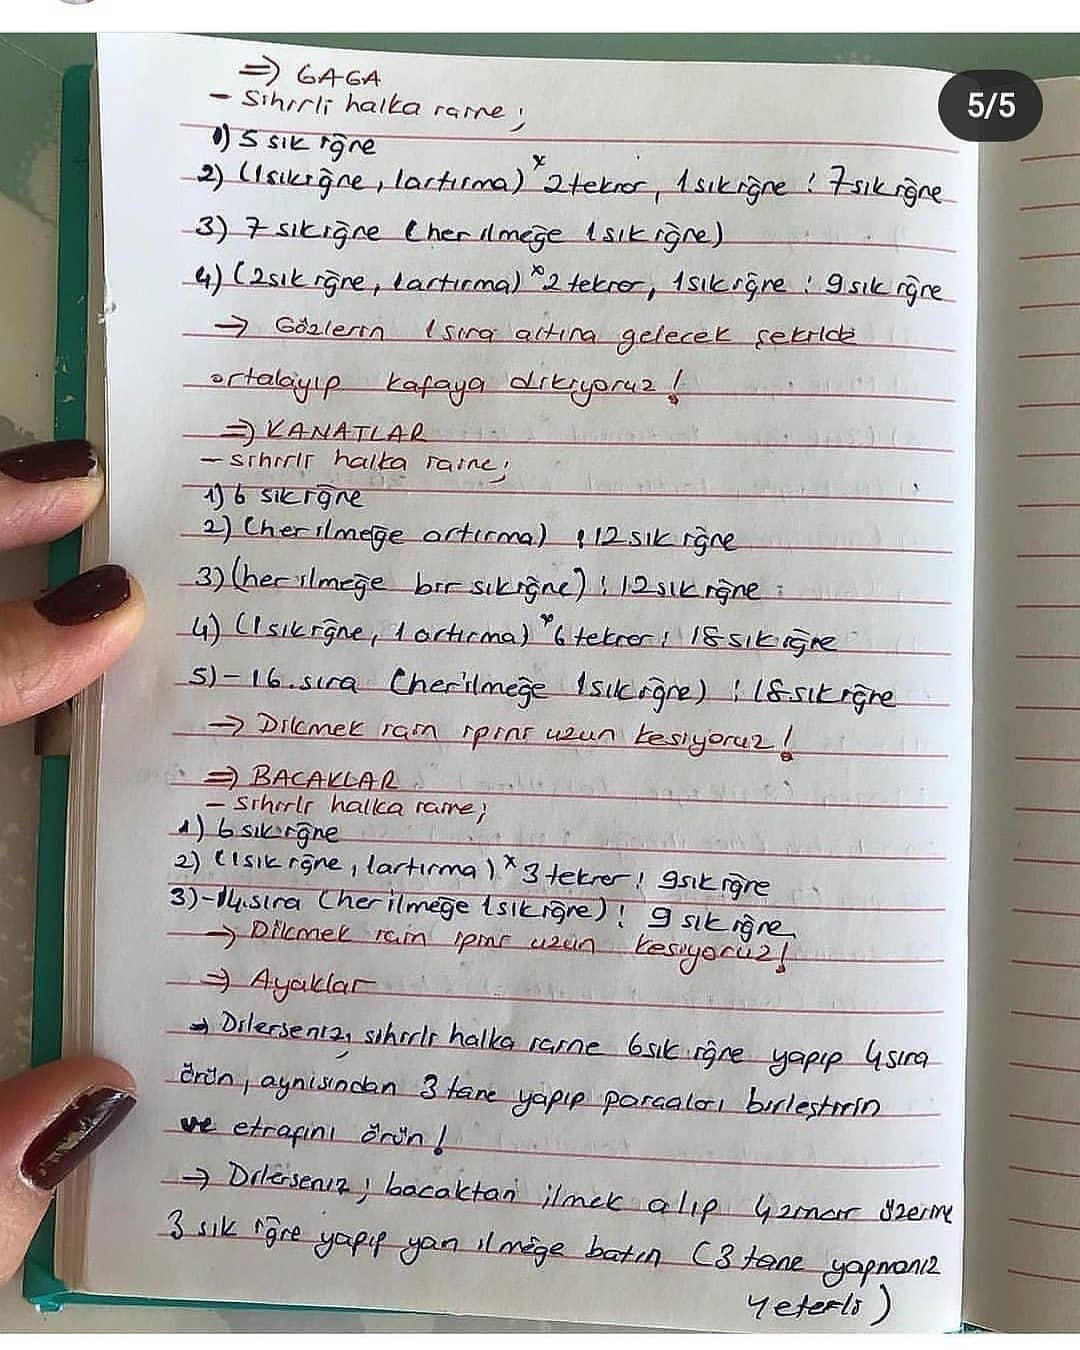 5/5
⇒ GAGA
- Sihirli halka içine;
1) 5 sık iğne
2) (1 sık iğne, 1 artırma) * 2 tekrar, 1 sık iğne : 7 sık iğne
3) 7 sık iğne (her ilmeğe 1 sık iğne)
4) (2 sık iğne, 1 artırma) * 2 tekrar, 1 sık iğne : 9 sık iğne
→ Gözlerin 1 sıra altına gelecek şekilde
ortalayıp kafaya dikiyoruz!
⇒ KANATLAR
- sihirli halka içine;
1) 6 sık iğne
2) (her ilmeğe artırma) : 12 sık iğne
3) (her ilmeğe bir sık iğne) : 12 sık iğne
4) (1 sık iğne, 1 artırma) * 6 tekrar : 18 sık iğne
5) - 16. sıra (her ilmeğe 1 sık iğne) : 18 sık iğne
→ Dikmek için ipini uzun kesiyoruz!
⇒ BACAKLAR
- sihirli halka içine;
1) 6 sık iğne
2) (1 sık iğne, 1 artırma) * 3 tekrar : 9 sık iğne
3) - 14. sıra (her ilmeğe 1 sık iğne) : 9 sık iğne
→ Dikmek için ipini uzun kesiyoruz!
⇒ Ayaklar
→ Dilerseniz, sihirli halka içine 6 sık iğne yapıp 4 sıra
örün, aynısından 3 tane yapıp parçaları birleştirin
ve etrafını örün!
→ Dilerseniz; bacaktan ilmek alıp 4 zincir üzerine
3 sık iğne yapıp yan ilmeğe batın (3 tane yapmanız
yeterli)